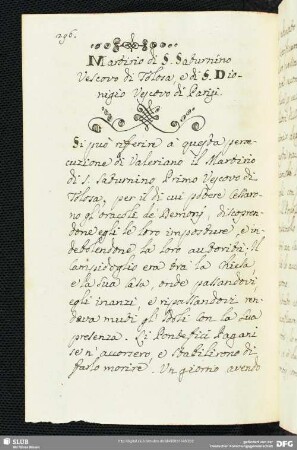 296.
Martirio di S. Saturnino
Vescovo di Tolosa, e di S. Dio-
nigio Vescovo di Parigi.
Si può riferire a questa perse-
cuzione di Valeriano il Martirio
di S. Saturnino Primo Vescovo di
Tolosa, per il di cui potere cessaro-
no gl'oracoli de Demonj, discopren-
done egli le loro imposture, e in-
debolendone la loro autorità. Il
Campidoglio era tra la Chiesa,
e la sua casa, onde passandovi
egli inanzi, e ripassandovi ren-
deva muti gl'Idoli con la sua
presenza. Li Pontefici Pagani
se n'accorsero, e stabilirono di
farlo morire. Un giorno avendo
SLUB
Wir führen Wissen.
gefördert von der
DFG